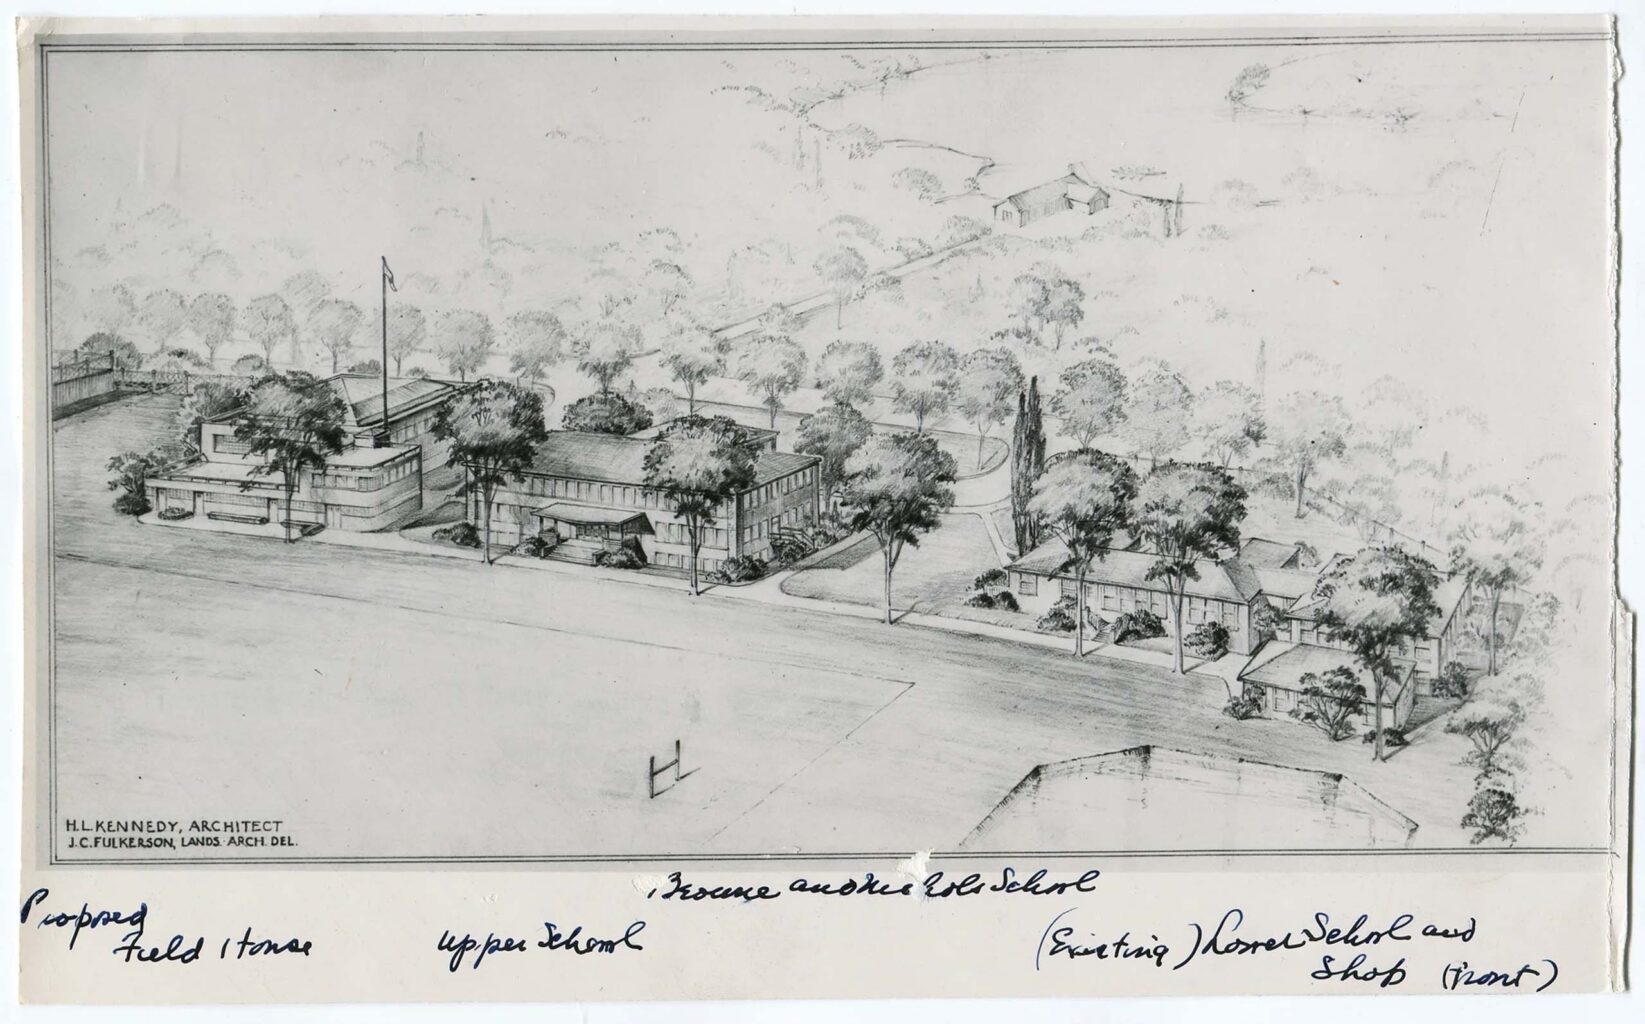 H.L. KENNEDY, ARCHITECT
J.C. FULKERSON, LANDS. ARCH. DEL.
Browne and Nichols School
Proposed
Field House
Upper School
(Existing) Lower School and
Shop (front)